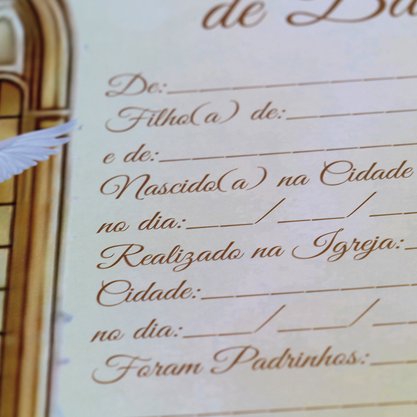 de Ba
De:
Filho(a) de:
e de:
Nascido(a) na Cidade
no dia: / /
Realizado na Igreja:
Cidade:
no dia: / /
Foram Padrinhos: